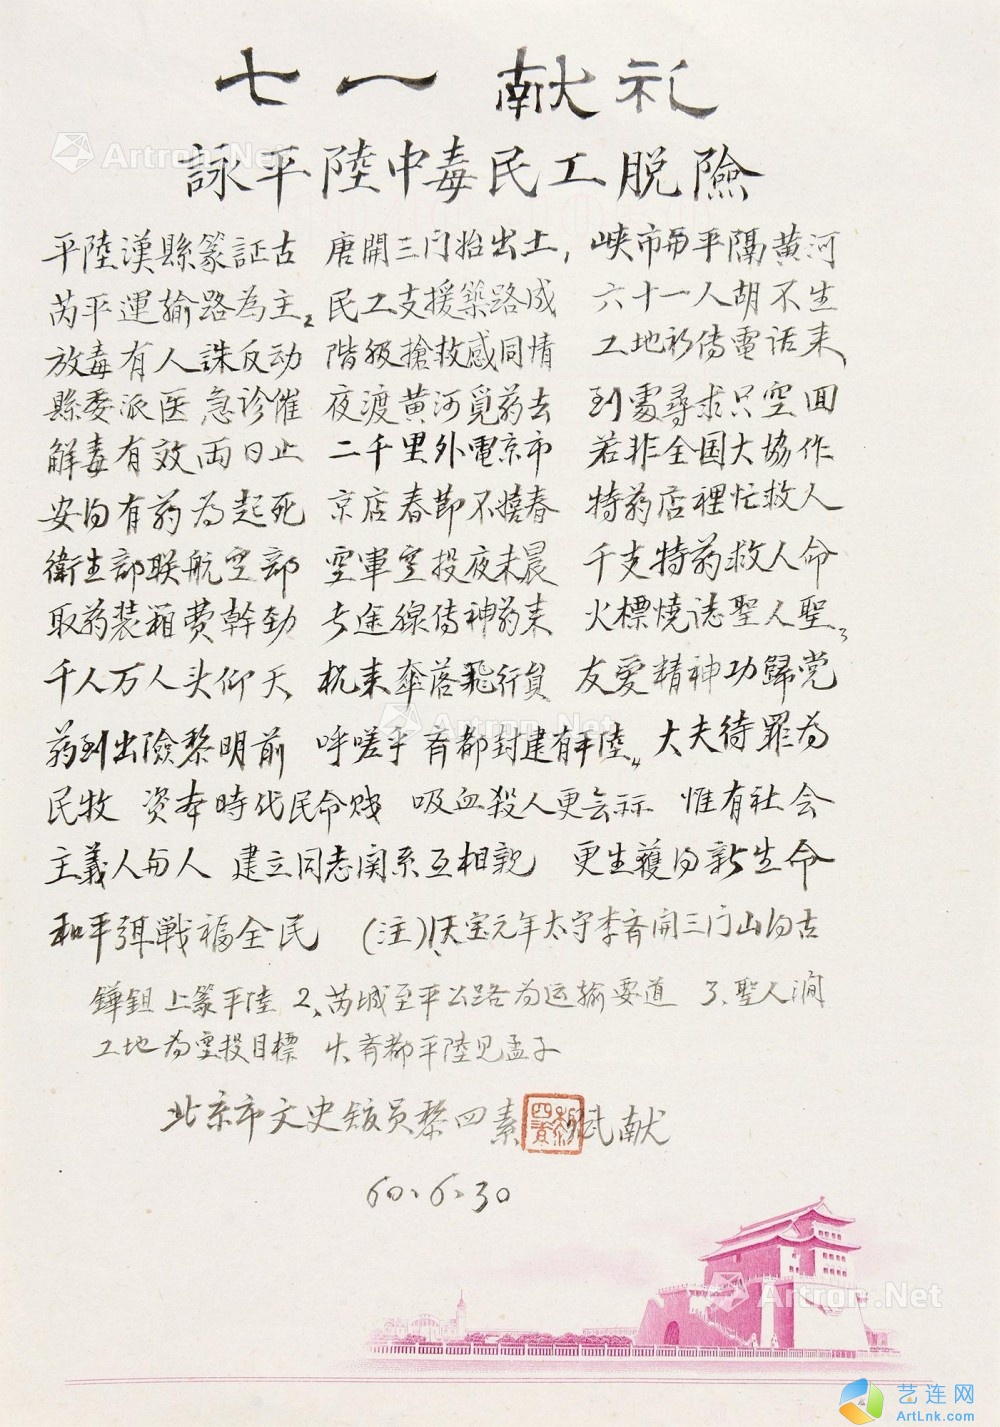 七一 献礼
詠平陸中毒民工脱險
平陸漢縣篆証古 唐開三门始出土, 峡市面平隔黄河
芮平運输路為主2 民工支援築路成 六十一人胡不生
放毒有人誅反动 階級搶救感同情 工地衫传電话来
縣委派医急诊催 夜渡黄河觅药去 到處尋求只空回
解毒有效两日止 二千里外電京市 若非全国大協作
安得有药为起死 京店春節不嬉春 特药店裡忙救人
衛生部联航空部 空軍空投夜未晨 千支特药救人命
取药装箱费幹劲 长途線传神药来 火標燒誌聖人聖3
千人万人头仰天 机来傘落飛行員 友爱精神功歸党
药到出險黎明前 呼嗟乎 齊都封建有平陸4 大夫待罪为
民牧 资本時代民命贱 吸血殺人更 惟有社会
主義人与人 建立同志関系互相親 更生獲得新生命
和平弭戰福全民 (注)1天宝元年太守李齊開三门山得古
鏵鉏上篆平陸 2、芮城至平公路为运输要道 3、聖人澗
工地为空投目標 4、齊都平陸见孟子
北京市文史馆员黎四素 赋献
黎四素
60.6.30
Artron.Net
Artron.Net
Artron.Net
艺连网
ArtLnk.com